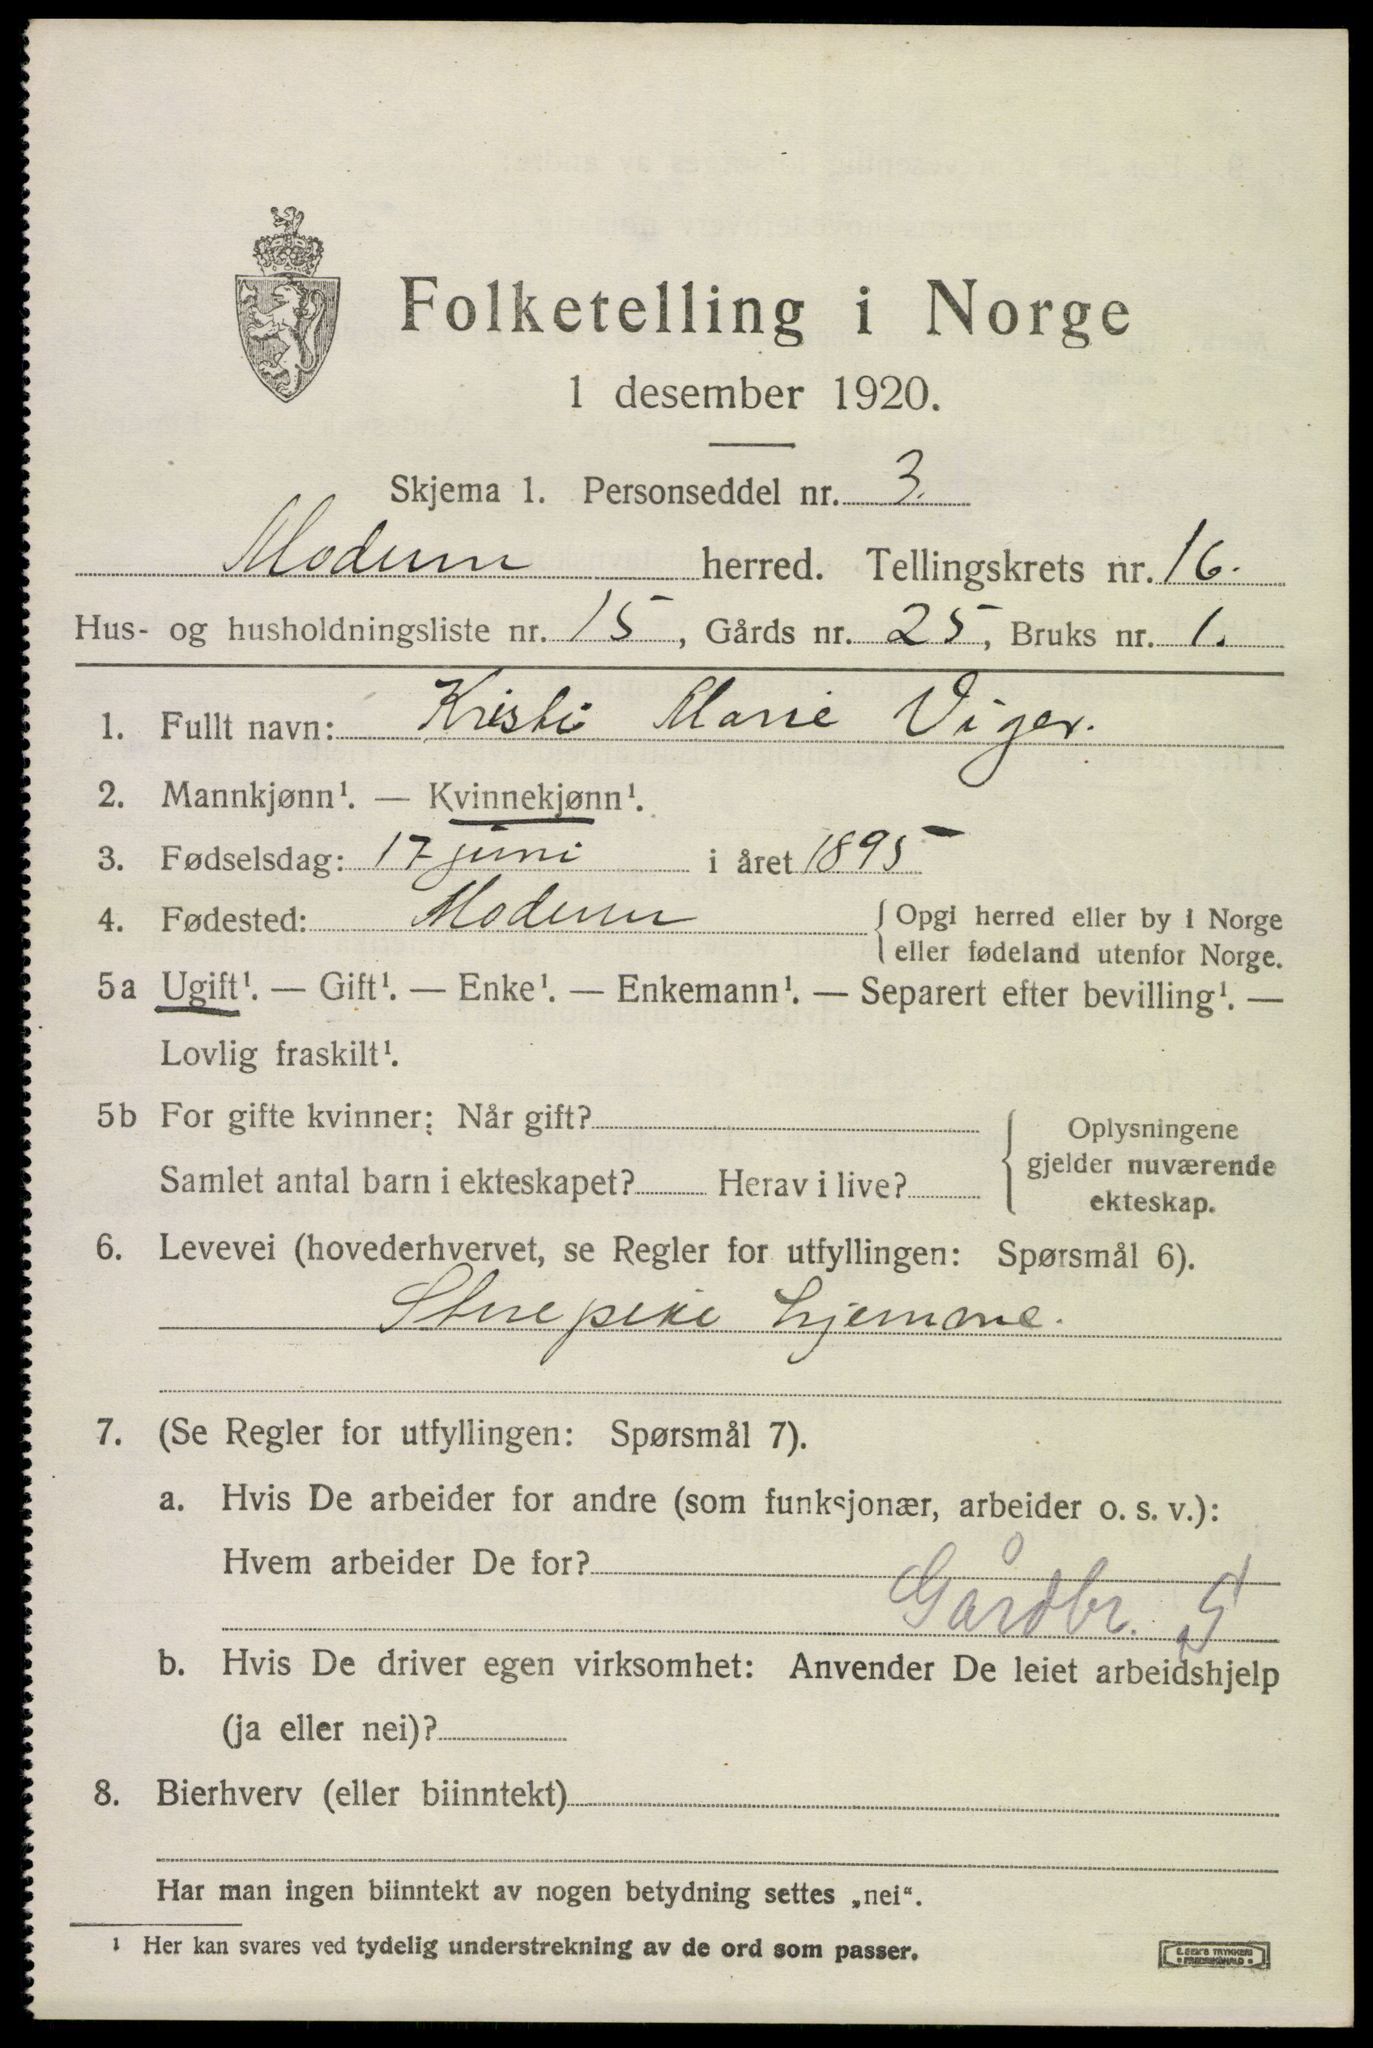 Folketelling i Norge
1 desember 1920.
Skjema 1. Personseddel nr. 3.
Modum herred. Tellingskrets nr. 16.
Hus- og husholdningsliste nr. 15, Gårds nr. 25, Bruks nr. 1.
1. Fullt navn: Kristi Marie Viger.
2. Mannkjønn¹. — Kvinnekjønn¹.
3. Fødselsdag: 17 juni i året 1895
4. Fødested: Modum {Opgi herred eller by i Norge
eller fødeland utenfor Norge.
5a Ugift¹. — Gift¹. — Enke¹. — Enkemann¹. — Separert efter bevilling¹. —
Lovlig fraskilt¹.
5b For gifte kvinner: Når gift? {Oplysningene
gjelder nuværende
Samlet antal barn i ekteskapet? Herav i live?
ekteskap.
6. Levevei (hovederhvervet, se Regler for utfyllingen: Spørsmål 6).
hjemme.
7. (Se Regler for utfyllingen: Spørsmål 7).
a. Hvis De arbeider for andre (som funksjonær, arbeider o. s. v.):
Hvem arbeider De for?
Gårdbr. S
b. Hvis De driver egen virksomhet: Anvender De leiet arbeidshjelp
(ja eller nei)?
8. Bierhverv (eller biinntekt)
Har man ingen biinntekt av nogen betydning settes „nei“.
¹ Her kan svares ved tydelig understrekning av de ord som passer.
E. SEM'S TRYKKERI
• FREDRIKSHALD •